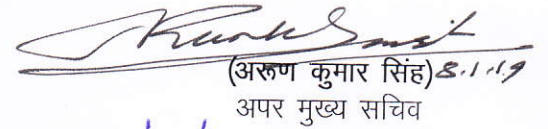 (अरूण कुमार सिंह) 8.1.19
अपर मुख्य सचिव